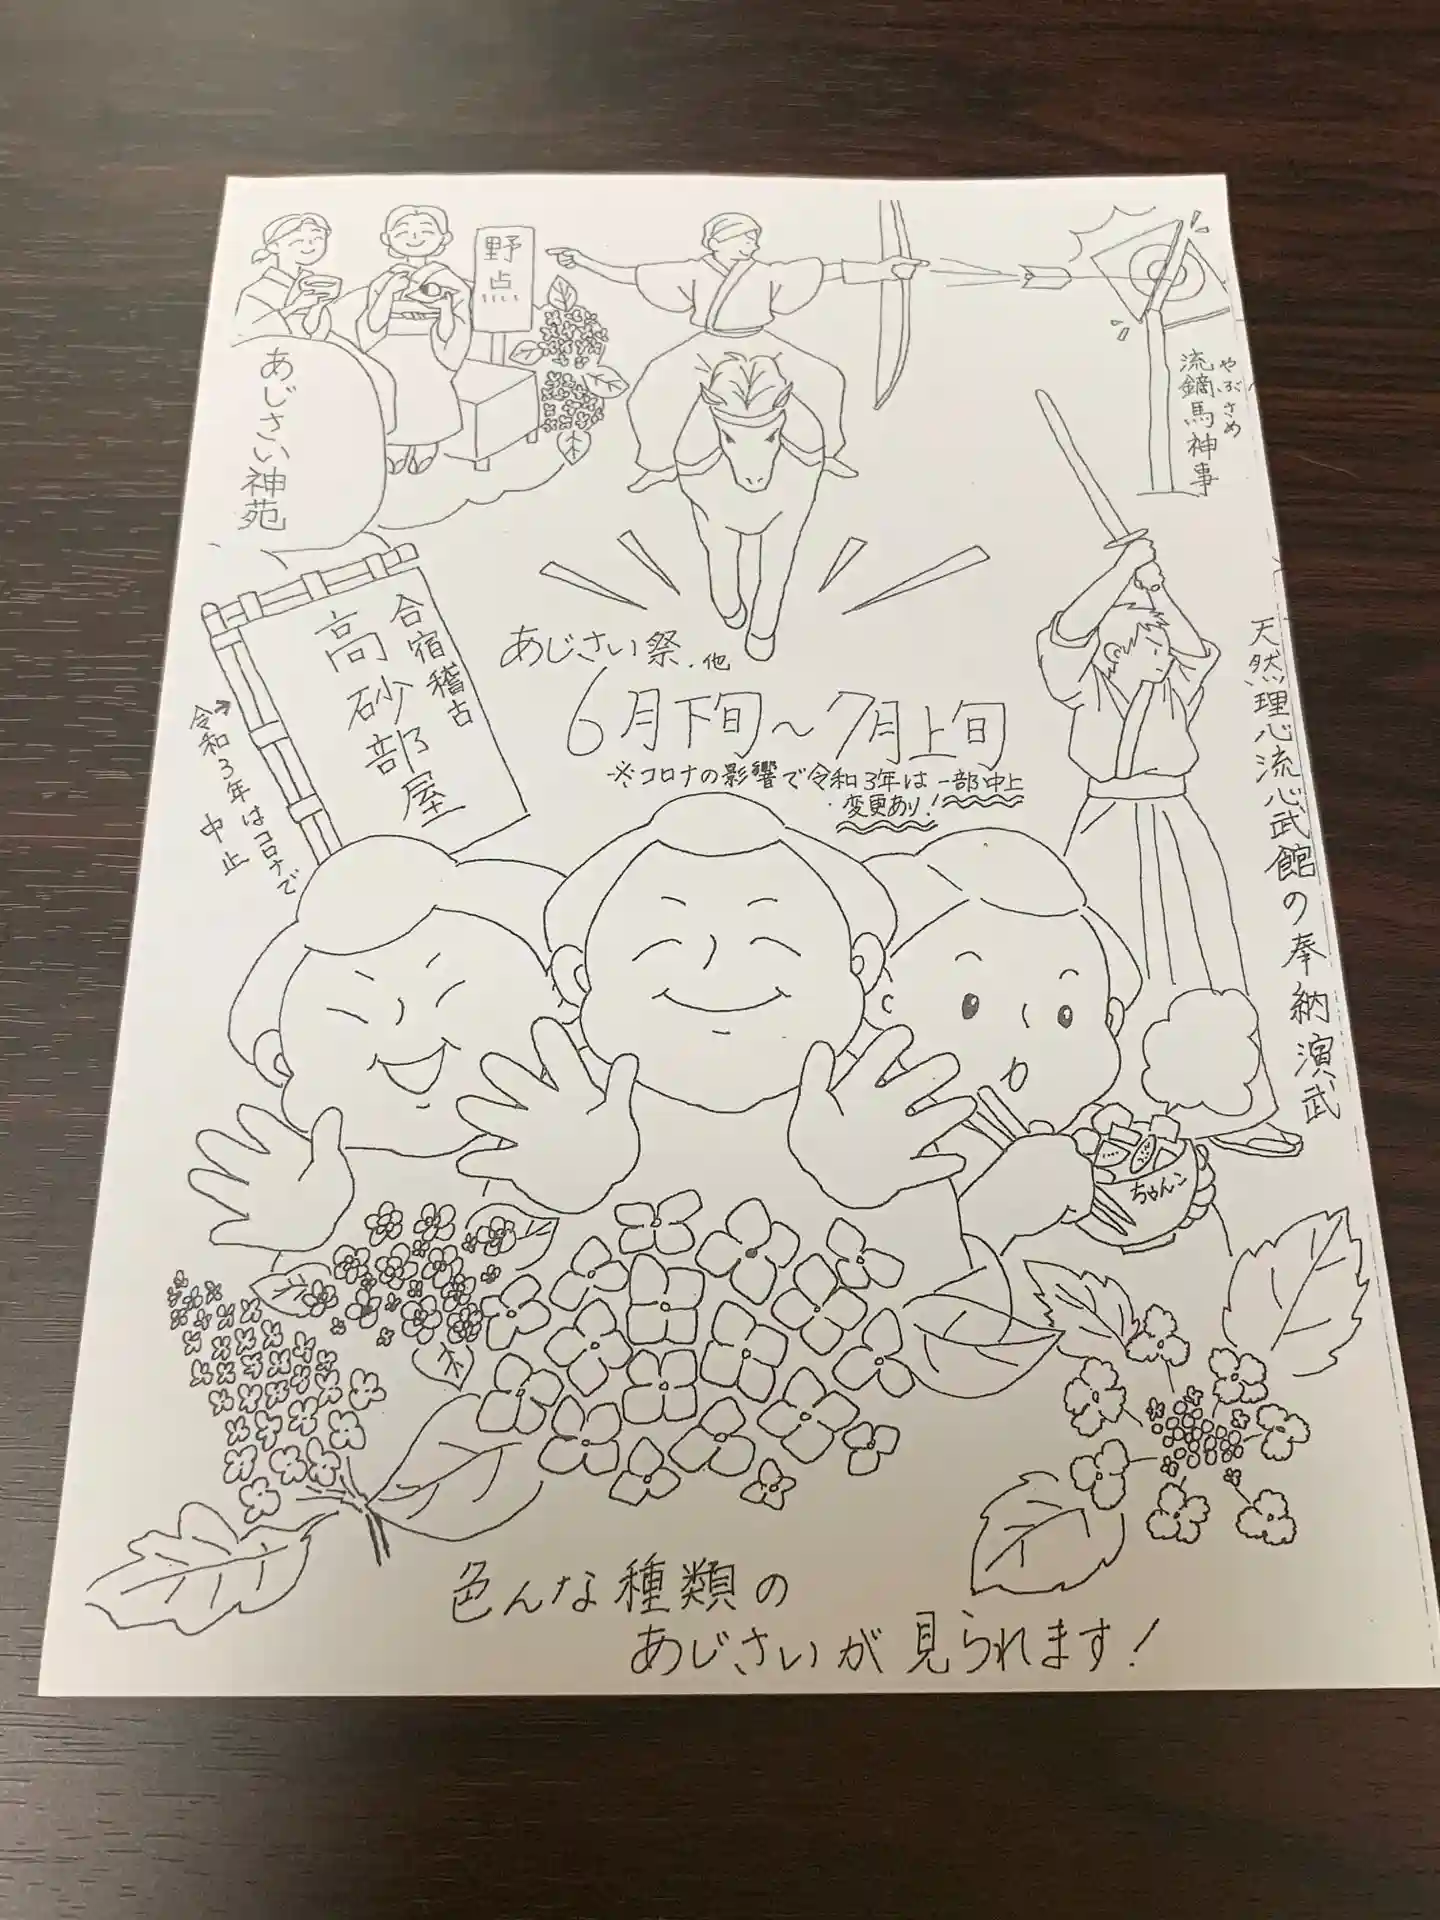 野点
あじさい神苑
流鏑馬神事
やぶさめ
合宿稽古
高砂部屋
令和3年はコロナで
中止
あじさい祭.他
6月下旬～7月上旬
※コロナの影響で令和3年は一部中止
・変更あり!
天然理心流心武館の奉納演武
ちゃんこ
色んな種類の
あじさいが見られます!